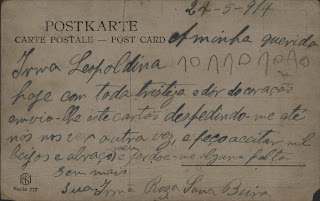 24-5-914
POSTKARTE
CARTE POSTALE — POST CARD
A minha querida
Irma Leopoldina
hoje com toda tristeja e dor do coração
envio-lhe éte cartão despedindo-me até
nós nos ver outra vez, e peço aceitar mil
beijos e abraços e perdoe-me alguma falta
Sem mais
Sua Irmã Roza
Beira